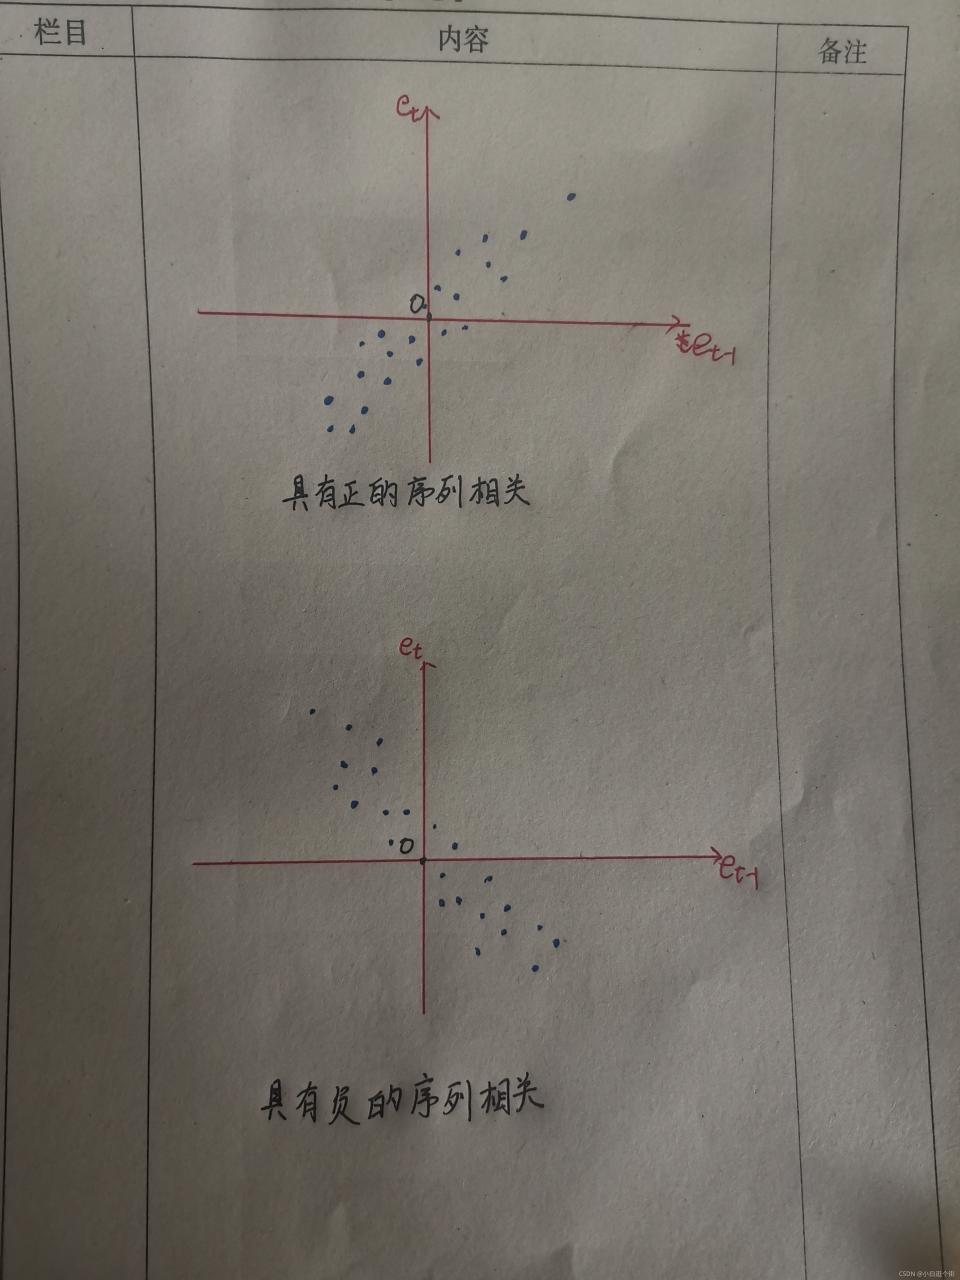 栏目 内容 备注
et
0
et-1
具有正的序列相关
et
0
et-1
具有负的序列相关
CSDN @小白进个街